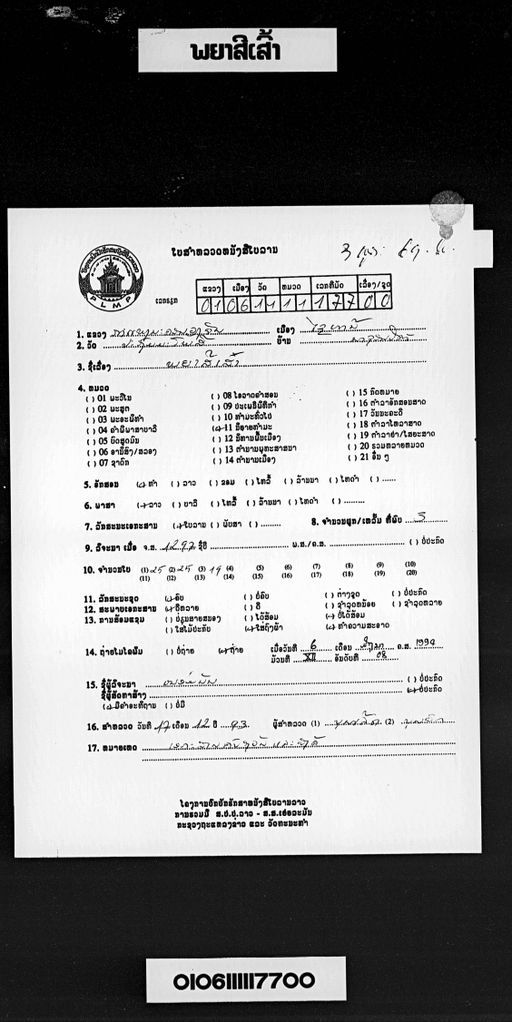 ພຍາສີເສົ້າ
ໃບສຳຫລວດຫນັງສືໃບລານ
PLMP
ແຂວງ ເມືອງ ວັດ ຫມວດ ເລກທີມັດ ເລື່ອງ/ຊຸດ
ເລກຣຸກ 01 06 11 11 177 00
1. ແຂວງ ເມືອງ
2. ວັດ ບ້ານ
3. ຊື່ເລື່ອງ ພຍາສີເສົ້າ
4. ຫມວດ
( ) 01 ພະວິໄນ ( ) 08 ໂອວາດຄຳສອນ ( ) 15 ກົດຫມາຍ
( ) 02 ພະສູດ ( ) 09 ປະເພນີພິທີກຳ ( ) 16 ຕຳລາອັກສອນສາດ
( ) 03 ພະອະພິທຳ ( ) 10 ທຳມະທົ່ວໄປ ( ) 17 ວັນນະຄະດີ
( ) 04 ຄຳພີພາສາບາລີ (✓) 11 ນິຍາຍທຳມະ ( ) 18 ຕຳລາໂຫລາສາດ
( ) 05 ບົດສູດມົນ ( ) 12 ນິທານພື້ນເມືອງ ( ) 19 ຕຳລາຢາ/ໄສຍະສາດ
( ) 06 ອານິສົງ/ສລອງ ( ) 13 ຕຳນານພຸທະສາສນາ ( ) 20 ຣວມຫລາຍຫມວດ
( ) 07 ຊາດົກ ( ) 14 ຕຳນານເມືອງ ( ) 21 ອື່ນ ໆ
5. ອັກສອນ (✓) ທຳ ( ) ລາວ ( ) ຂອມ ( ) ໄທລື້ ( ) ລ້ານນາ ( ) ໄທດຳ ( )
6. ພາສາ (✓) ລາວ ( ) ບາລີ ( ) ໄທລື້ ( ) ລ້ານນາ ( ) ໄທດຳ ( )
7. ລັກສະນະເອກະສານ (✓) ໃບລານ ( ) ພັບສາ ( ) 8. ຈຳນວນຜູກ/ເຫລັ້ມ ທີ່ພົບ 3
9. ປີຈະນາ ເມື່ອ ຈ.ສ. 1292 ຊື່ປີ ພ.ສ./ຄ.ສ. ( ) ບໍ່ປະກົດ
10. ຈຳນວນໃບ (1) 25 (2) 25 (3) 19 (4) (5) (6) (7) (8) (9) (10)
(11) (12) (13) (14) (15) (16) (17) (18) (19) (20)
11. ລັກສະນະຊຸດ (✓) ຄົບ ( ) ບໍ່ຄົບ ( ) ຕ່າງຊຸດ ( ) ບໍ່ປະກົດ
12. ສະພາບເອກະສານ (✓) ດີຫລາຍ ( ) ດີ ( ) ຊຳລຸດຫນ້ອຍ ( ) ຊຳລຸດຫລາຍ
13. ການສ້ອມແຊມ ( ) ປ່ຽນສາຍສນອງ ( ) ໄດ້ສ້ອມ (✓) ບໍ່ໄດ້ສ້ອມ
( ) ໃສ່ໄມ້ປະກັບ (✓) ໃສ່ຖົງຜ້າ (✓) ທຳຄວາມສະອາດ
14. ຖ່າຍໄມໂຄຣຟິມ ( ) ບໍ່ຖ່າຍ (✓) ຖ່າຍ ເມື່ອວັນທີ 6 ເດືອນ ຄ.ສ. 1994
ມ້ວນທີ XII ອັນດັບທີ 08
15. ຊື່ຜູ້ປີຈະນາ ( ) ບໍ່ປະກົດ
ຊື່ຜູ້ສັດທາສ້າງ (✓) ບໍ່ປະກົດ
(✓) ມີຄຳອະທິຖານ ( ) ບໍ່ມີ
16. ສຳຫລວດ ວັນທີ 17 ເດືອນ 12 ປີ 93 ຜູ້ສຳຫລວດ (1) (2)
17. ຫມາຍເຫດ
ໂຄງການປົກປັກຮັກສາຫນັງສືໃບລານລາວ
ການຮ່ວມມື ສ.ປ.ປ.ລາວ - ສ.ສ.ເຢຍລະມັນ
ກະຊວງຖະແຫລງຂ່າວ ແລະ ວັດທະນະທຳ
0106111117700